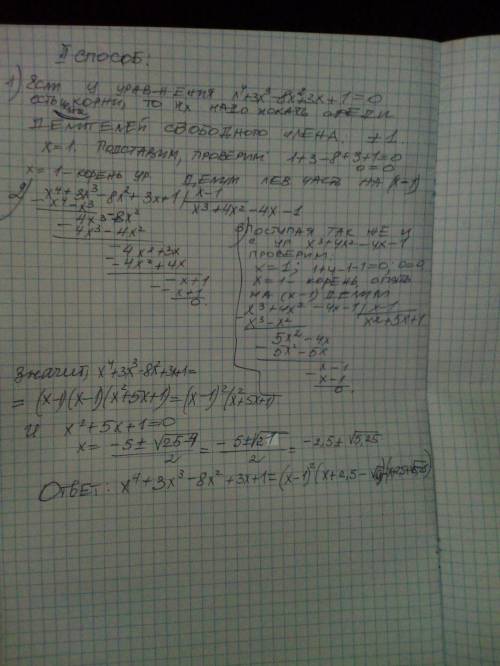 II СПОСОБ:
1) Если у уравнения x⁴+3x³-8x²+3x+1=0
есть целые корни, то их надо искать среди
делителей свободного члена ±1
x=1. Подставим, проверим 1+3-8+3+1=0
0=0
x=1 - корень ур. Делим лев часть на (x-1)
2) x⁴+3x³-8x²+3x+1 | x-1
x⁴-x³ x³+4x²-4x-1
4x³-8x²
4x³-4x²
-4x²+3x
-4x²+4x
-x+1
-x+1
0
3) Поступая так же и
с ур x³+4x²-4x-1
проверим:
x=1, 1+4-4-1=0; 0=0
x=1 - корень, опять
на (x-1) делим
x³+4x²-4x-1 | x-1
x³-x² x²+5x+1
5x²-4x
5x²-5x
x-1
x-1
0
Значит, x⁴+3x³-8x²+3x+1=
=(x-1)(x-1)(x²+5x+1)=(x-1)²(x²+5x+1)
и x²+5x+1=0
x= -5±√25-4 / 2 = -5±√21 / 2 = -2,5±√5,25
Ответ: x⁴+3x³-8x²+3x+1=(x-1)²(x+2,5-